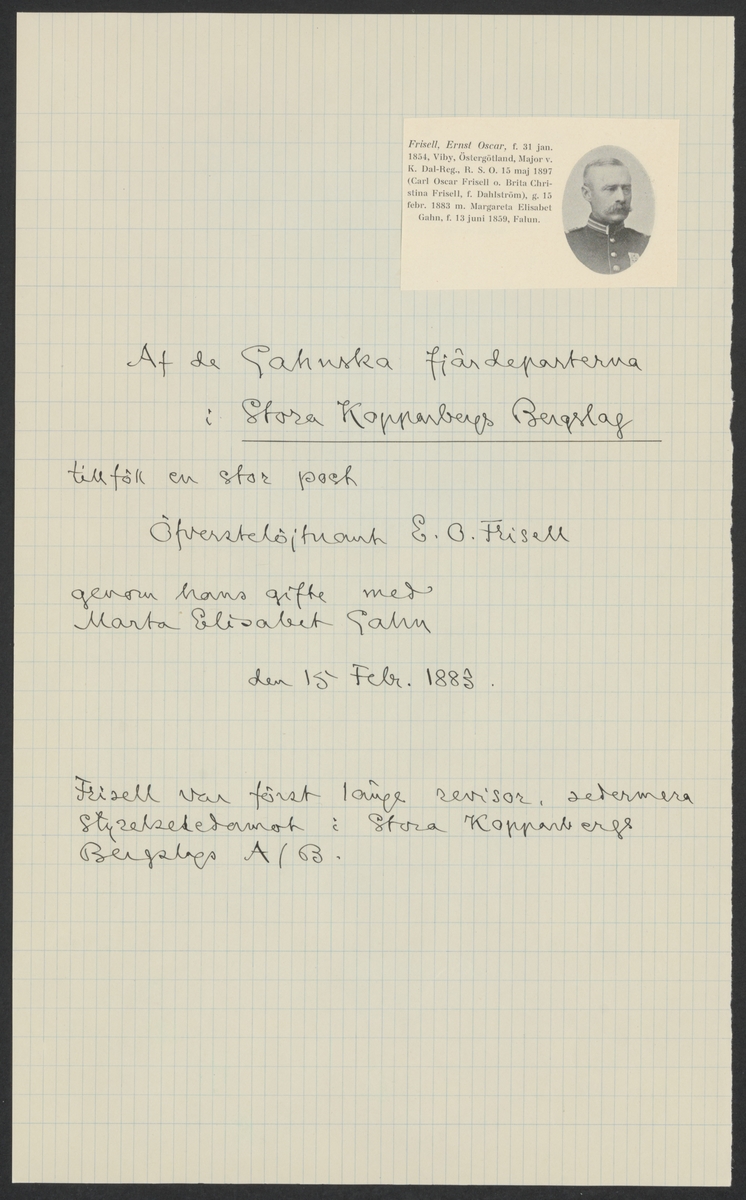 Frisell, Ernst Oscar, f. 31 jan.
1854, Viby, Östergötland, Major v.
K. Dal-Reg., R. S. O. 15 maj 1897
(Carl Oscar Frisell o. Brita Chri-
stina Frisell, f. Dahlström), g. 15
febr. 1883 m. Margareta Elisabet
Gahn, f. 13 juni 1859, Falun.
Af de Gahnska fjärdeparterna
i Stora Kopparbergs Bergslag
tillföll en stor post
Öfverstelöjtnant E. O. Frisell
genom hans gifte med
Marta Elisabet Gahn
den 15 Febr. 1883.
Frisell var först länge revisor, sedermera
Styrelseledamot i Stora Kopparbergs
Bergslags A/B.